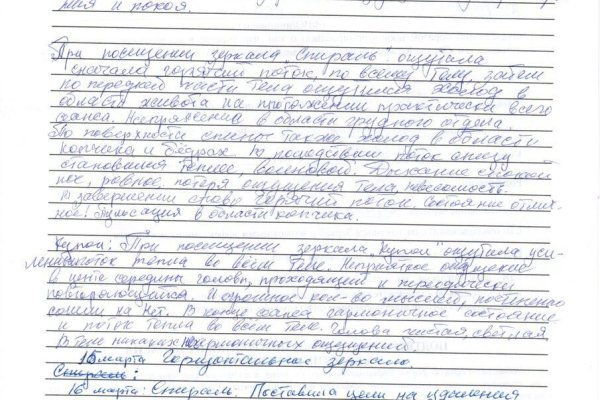 мия и покоя.
При посещении зеркала "Спираль" ощутила
сначала горячий поток, по всему телу, затем
по передней части тела ощущался холод в
области живота на протяжении практически всего
сеанса. Напряжение в области грудного отдела.
По поверхности спины также холод в области
копчика и бедрах. В последствии поток снизу
становился теплее, волновой. Дыхание спокой
ное, ровное, потеря ощущения тела, невесомость.
В завершении снова горячий поток. Состояние отлич-
ное. Пульсация в области копчика.
Купол: При посещении зеркала "Купол" ощутила уси-
ление поток тепла во всем теле. Неприятное ощущение
в центе середины головы, проходящий и периодически
повторяющийся. И огромное кол-во мыслей, постепенно
сошли на нет. В конце сеанса гармоничное состояние
и поток тепла во всем теле. Голова чистая, светлая,
в теле никаких негармоничных ощущений.
15 марта Горизонтальное зеркало.
Спираль:
16 марта: Спираль. Поставила цели на удаления